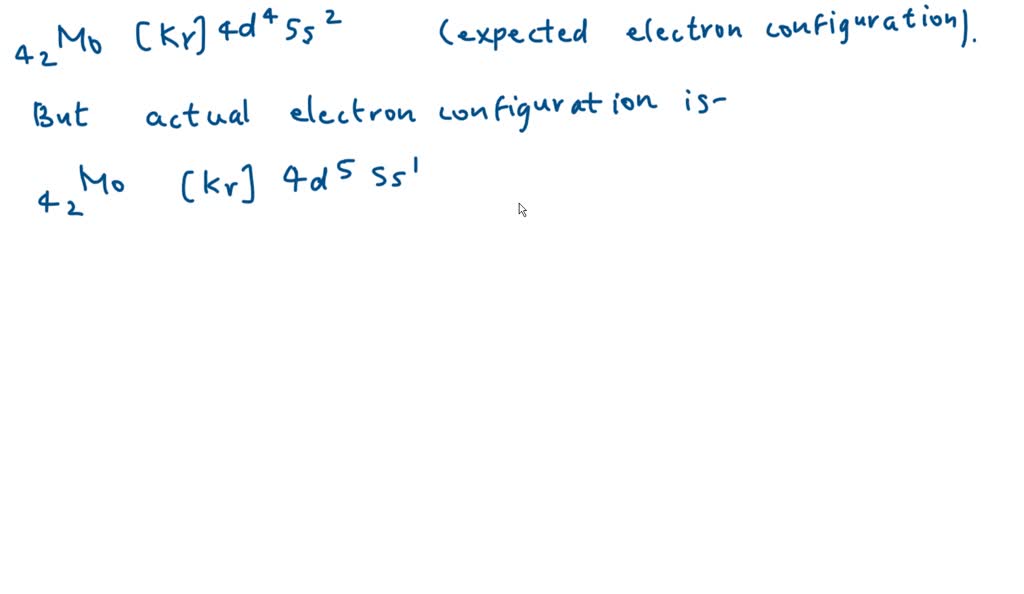 ₄₂Mo [Kr] 4d⁴ 5s² (expected electron configuration).
But actual electron configuration is-
₄₂Mo [Kr] 4d⁵ 5s¹